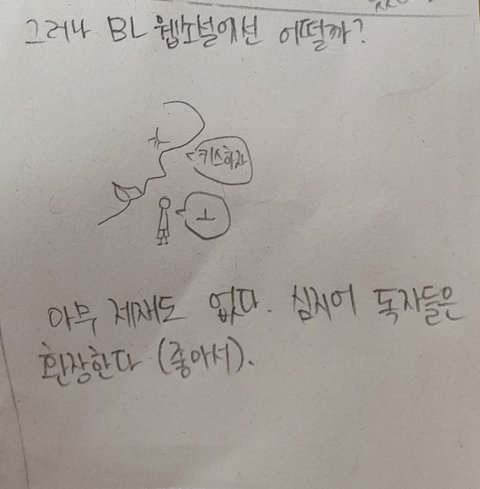 그러나 BL 웹소설에선 어떨까?
키스하자
ㅗ
아무 제재도 없다. 심지어 독자들은
환장한다 (좋아서).